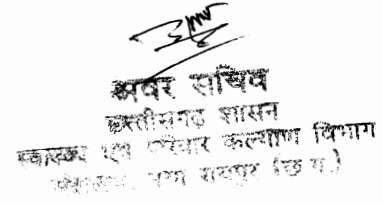 अवर सचिव
छत्तीसगढ़ शासन
स्वास्थ्य एवं परिवार कल्याण विभाग
मंत्रालय, नया रायपुर (छ.ग.)